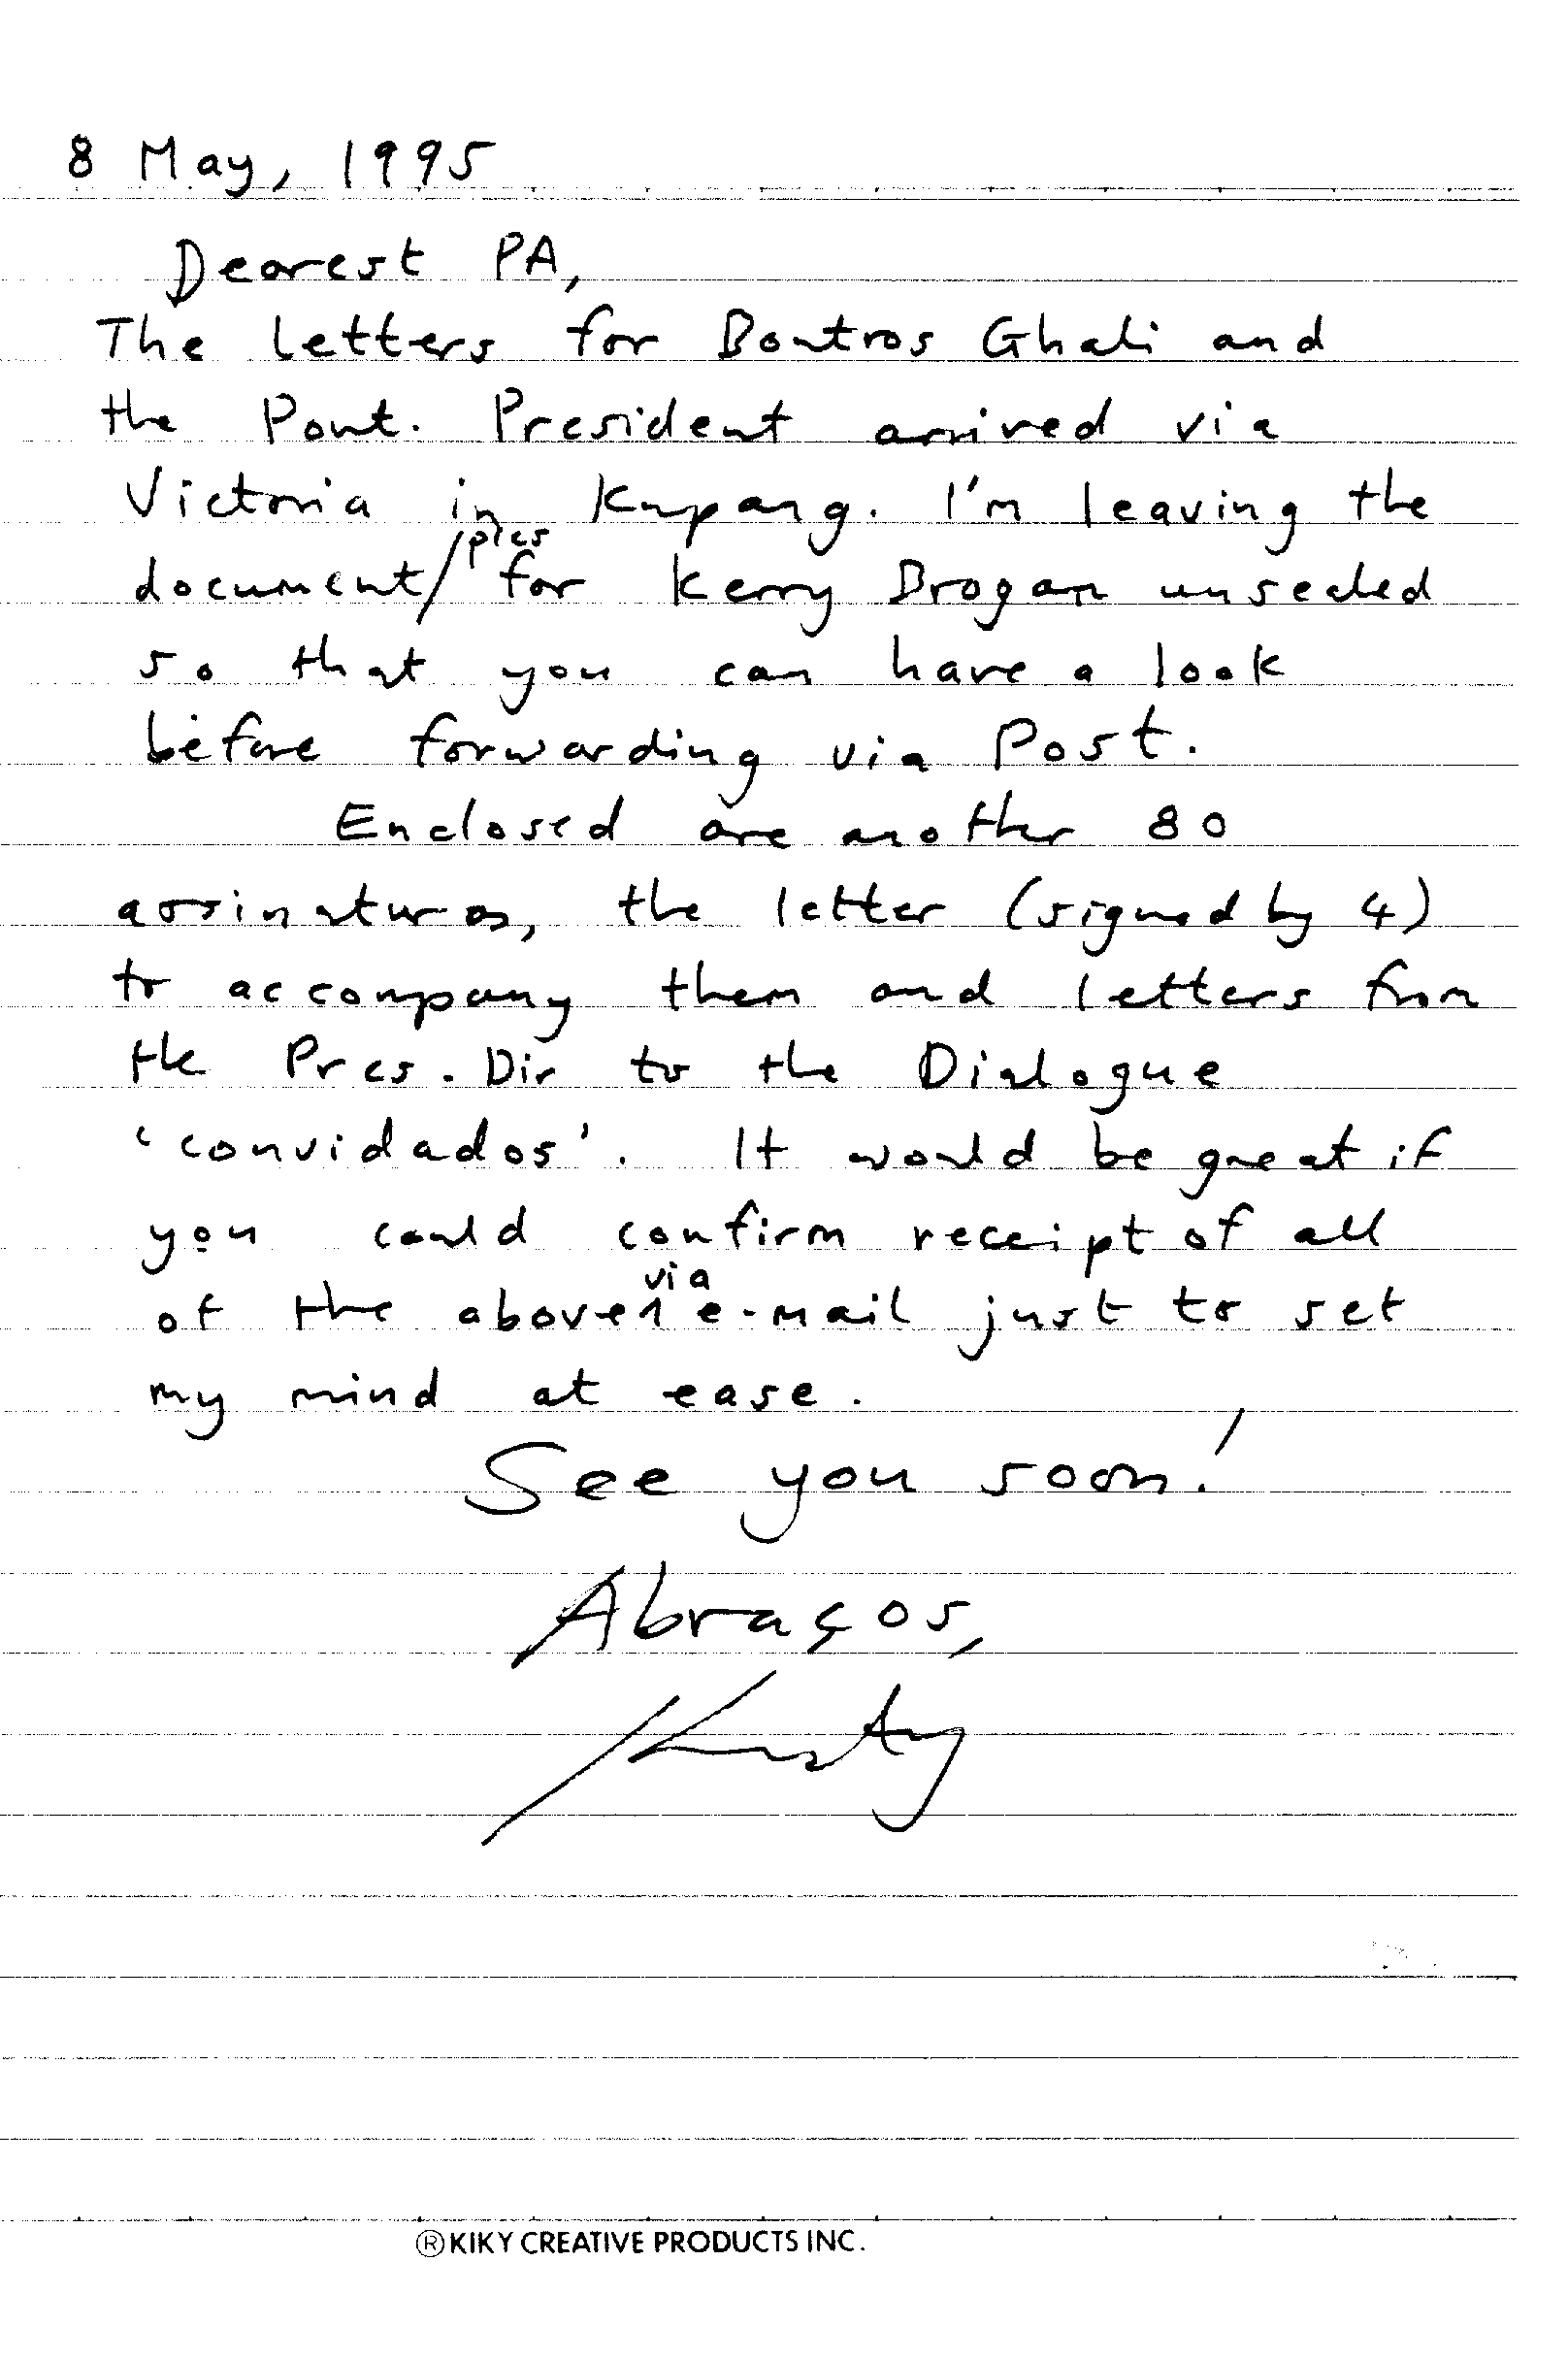 8 May, 1995
Dearest PA,
The letters for Boutros Ghali and
the Pont. President arrived via
Victoria in Kupang. I'm leaving the
document/pics for Kerry Brogan unsealed
so that you can have a look
before forwarding via Post.
Enclosed are another 80
assinaturas, the letter (signed by 4)
to accompany them and letters from
the Pres. Dir to the Dialogue
'convidados'. It would be great if
you could confirm receipt of all
of the above via e-mail just to set
my mind at ease.
See you soon!
Abraços,
Kirsty
®KIKY CREATIVE PRODUCTS INC.